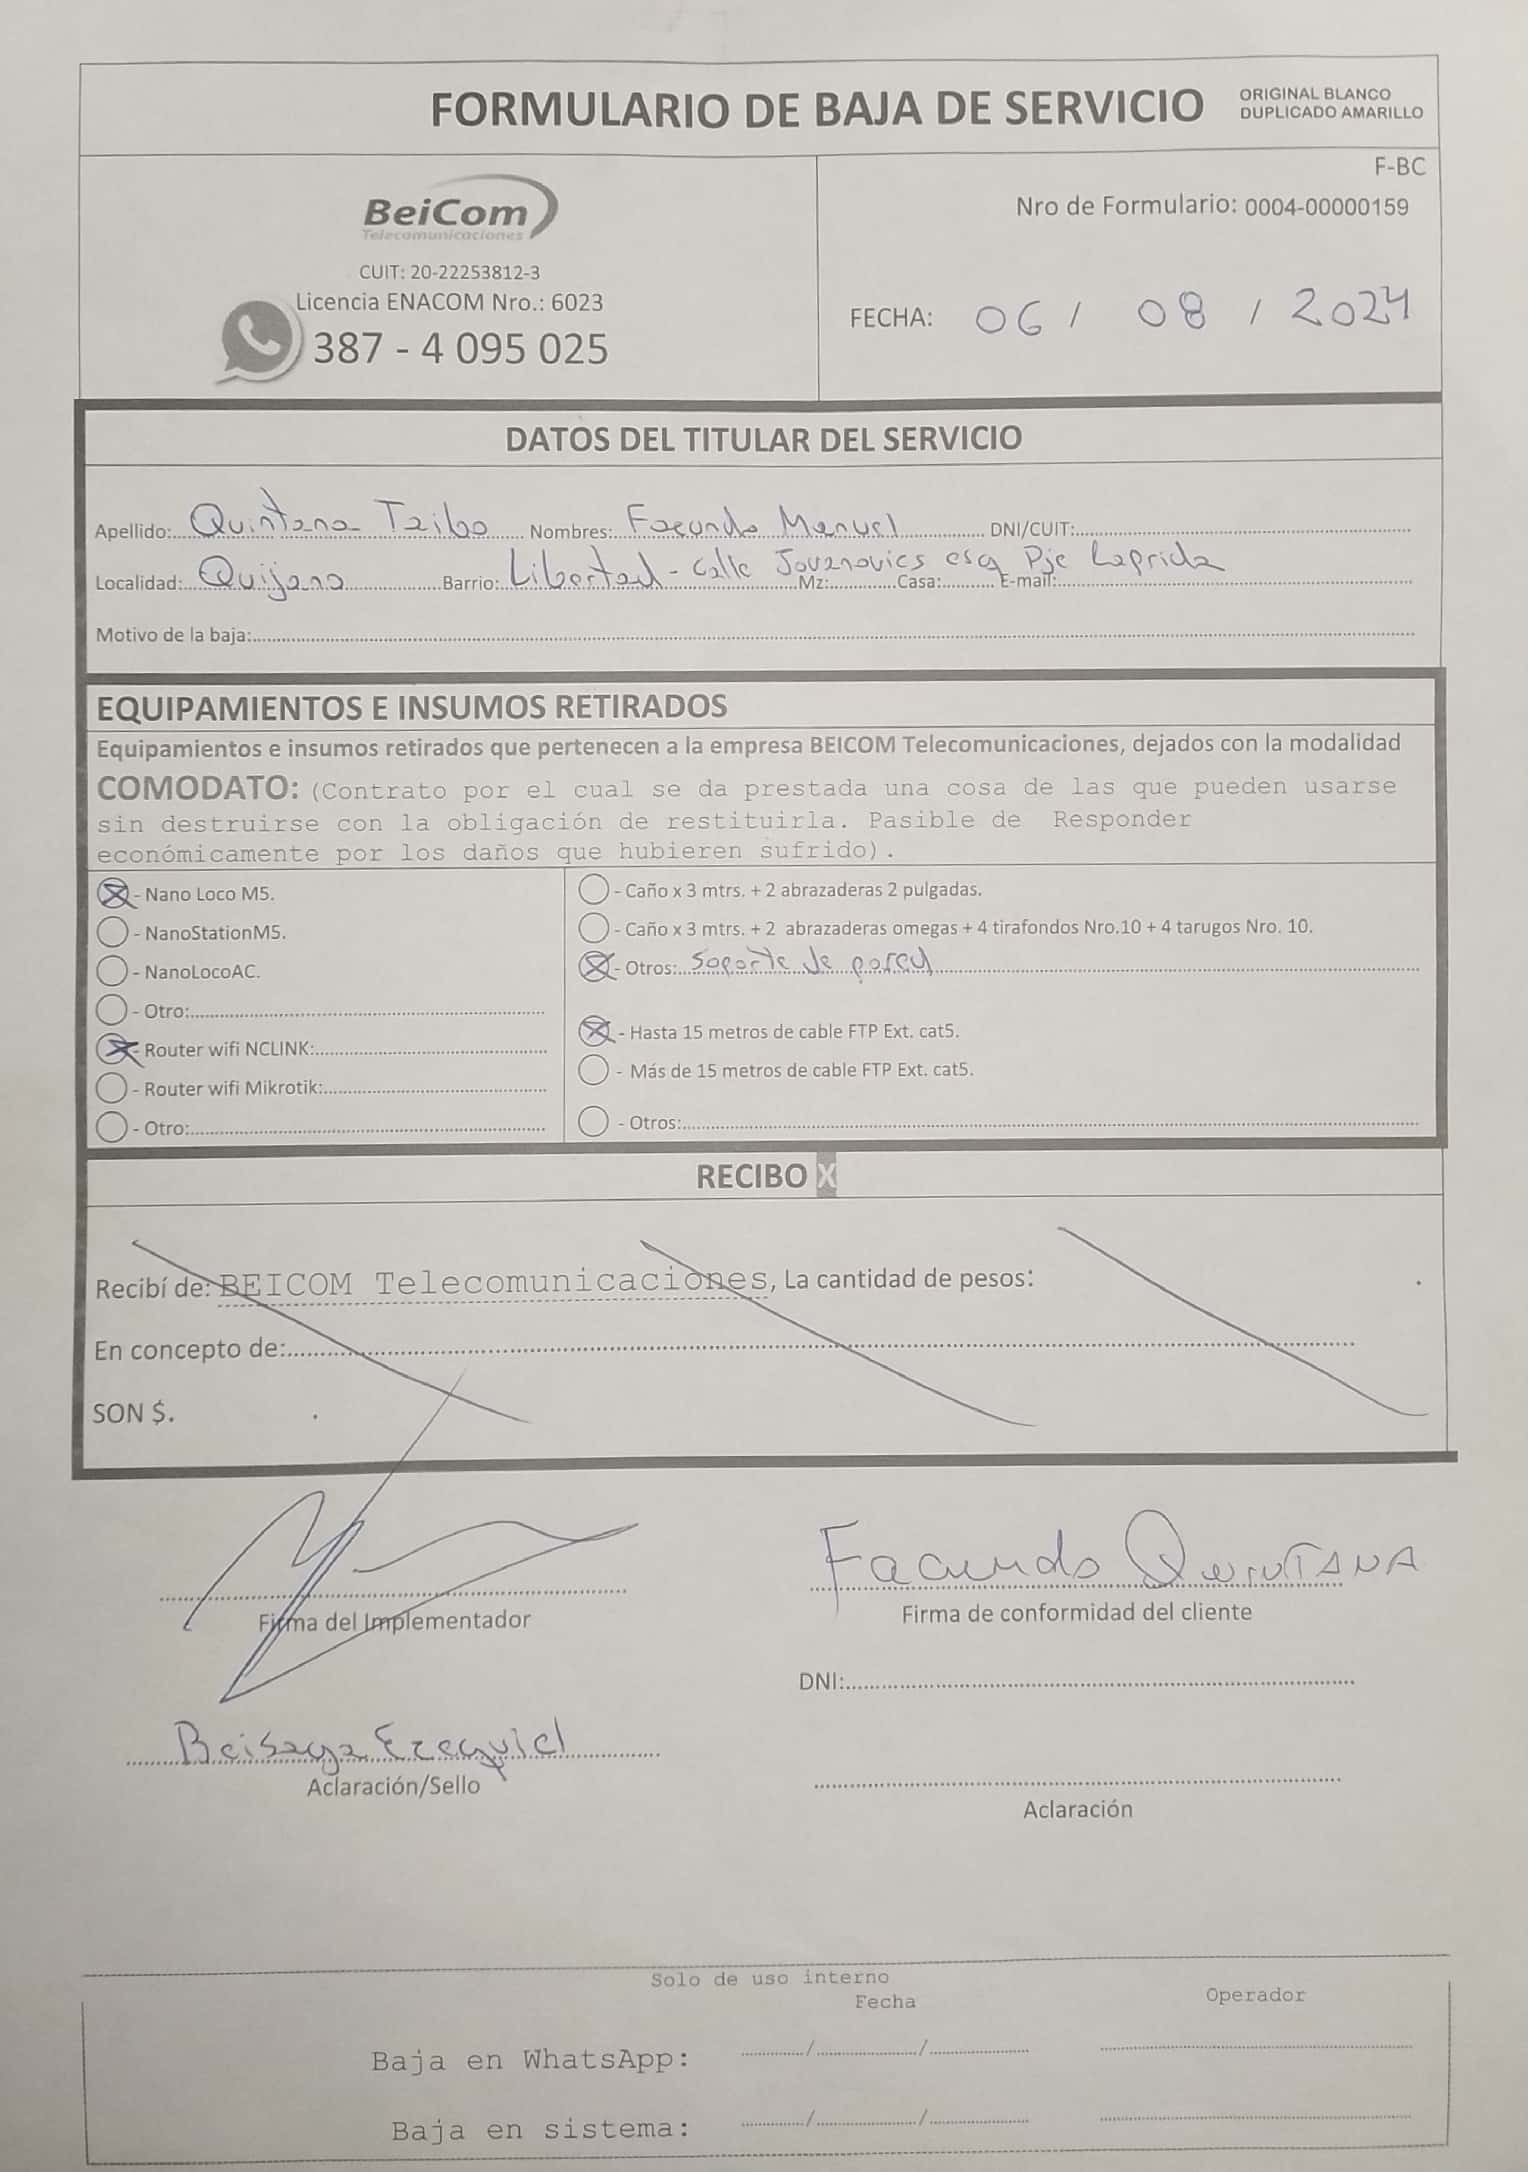 FORMULARIO DE BAJA DE SERVICIO
ORIGINAL BLANCO
DUPLICADO AMARILLO
BeiCom
Telecomunicaciones
CUIT: 20-22253812-3
Licencia ENACOM Nro.: 6023
387 - 4 095 025
F-BC
Nro de Formulario: 0004-00000159
FECHA: 06 / 08 / 2024
DATOS DEL TITULAR DEL SERVICIO
Apellido: Quintana Taibo Nombres: Facundo Manuel DNI/CUIT:
Localidad: Quijano Barrio: Libertad - Calle Jovanovics esq Pje Laprida Mz: Casa: E-mail:
Motivo de la baja:
EQUIPAMIENTOS E INSUMOS RETIRADOS
Equipamientos e insumos retirados que pertenecen a la empresa BEICOM Telecomunicaciones, dejados con la modalidad
COMODATO: (Contrato por el cual se da prestada una cosa de las que pueden usarse
sin destruirse con la obligación de restituirla. Pasible de Responder
económicamente por los daños que hubieren sufrido).
- Nano Loco M5.
- NanoStationM5.
- NanoLocoAC.
- Otro:
- Router wifi NCLINK:
- Router wifi Mikrotik:
- Otro:
- Caño x 3 mtrs. + 2 abrazaderas 2 pulgadas.
- Caño x 3 mtrs. + 2 abrazaderas omegas + 4 tirafondos Nro.10 + 4 tarugos Nro. 10.
- Otros: Soporte de pared
- Hasta 15 metros de cable FTP Ext. cat5.
- Más de 15 metros de cable FTP Ext. cat5.
- Otros:
RECIBO X
Recibí de: BEICOM Telecomunicaciones, La cantidad de pesos: .
En concepto de:
SON $. .
Firma del Implementador
Beisaga Ezequiel
Aclaración/Sello
Facundo QuinTANA
Firma de conformidad del cliente
DNI:
Aclaración
Solo de uso interno
Fecha
Operador
Baja en WhatsApp: / /
Baja en sistema: / /